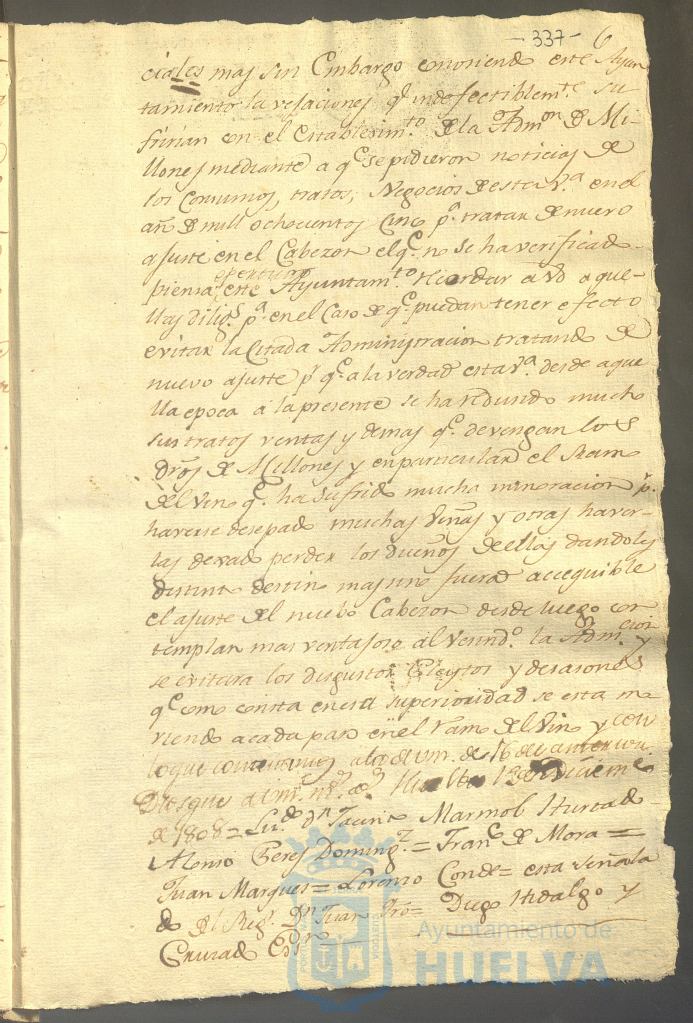 - 337 - 6
ciales mas sin Embargo conosiendo este Ayun
tamiento la vejaciones q.e indefectiblem.te su
fririan con el establecim.to de la Adm.on de Mi-
llones mediante a q.e se pidieron noticias de
los Consumos, tratos, Negocios de esta V.a en el
año de mill ochocientos Cinco p.a tratar de nuevo
ajuste en el Cabezon el q.e no se ha verificado
piensa este Ayuntam.to recordar a Vd aque-
llas dilig.s p.a en el Caso de q.e puedan tener efecto
evitar la Citada Administracion tratando de
nuevo ajuste p.r q.e a la verdad esta V.a desde aque
lla epoca á la presente se ha redusido mucho
sus tratos ventas y demas q.e devengan los
dros de Millones y en particular el Ramo
del Vino q.e ha sufrido mucha minoracion p.r
haverse desepado muchas Viñas y otras haver-
las dexado perder los dueños de ellas dandoles
distinto destino mas si no fuera accequible
el ajuste del nuebo Cabezon desde luego con
templan mas ventajoso al Vecind.o la Adm.cion y
se evitara los disgustos Pleytos y desasones
q.e como consta en esa superioridad se esta mo
viendo a cada paso en el ramo del Vino y con
lo que contextamos a la de Vm. de 16 de
Dios gue a Vm. m.s a.s Huelba Diciem.e
de 1808 = Lic.do D.n Marmol Hurtado
Alonso Peres Doming.z = Fran.co de Mora =
Juan Marques = Lorenzo Conde = esta señala
do del Reg.r D.n Juan = Diego Hidalgo y
Cruzado Ess.no
Ayuntamiento de
HUELVA